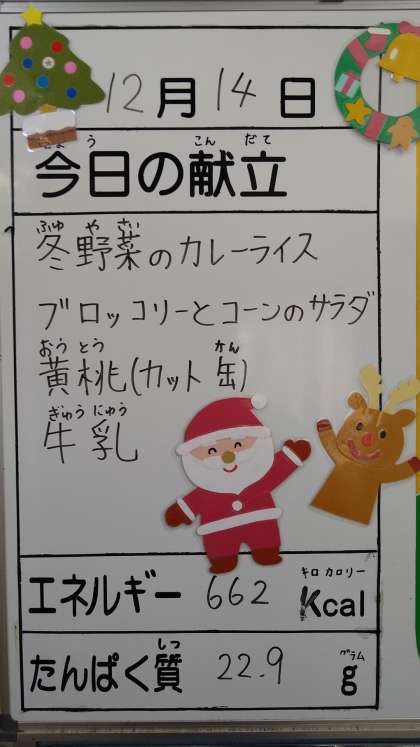 12月14日
きょう こん だて
今日の献立
ふゆ や さい
冬野菜のカレーライス
ブロッコリーとコーンのサラダ
おう とう かん
黄桃(カット缶)
ぎゅう にゅう
牛乳
キロ カロリー
エネルギー 662 Kcal
しつ グラム
たんぱく質 22.9 g